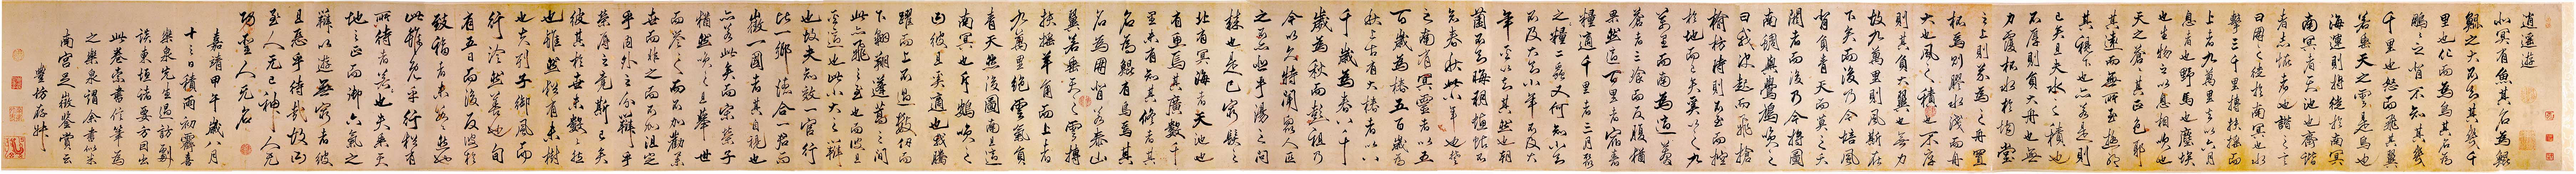 逍遙遊
北冥有魚其名為鯤
鯤之大不知其幾千
里也化而為鳥其名為
鵬鵬之背不知其幾
千里也怒而飛其翼
若垂天之雲是鳥也
海運則將徙於南冥
南冥者天池也齊諧
者志怪者也諧之言
曰鵬之徙於南冥也水
擊三千里摶扶搖而
上者九萬里去以六月
息者也野馬也塵埃
也生物之以息相吹也
天之蒼蒼其正色耶
其遠而無所至極耶
其視下也亦若是則
已矣且夫水之積也
不厚則負大舟也無
力覆杯水於坳堂
之上則芥為之舟置
杯焉則膠水淺而舟
大也風之積也不厚
則其負大翼也無力
故九萬里則風斯在
下矣而後乃今培風
背負青天而莫之夭
閼者而後乃今將圖
南蜩與鷽鳩笑之
曰我決起而飛搶
榆枋時則不至而控
於地而已矣奚以之九
萬里而南為適莽
蒼者三飡而反腹猶
果然適百里者宿舂
糧適千里者三月聚
之糧二蟲又何知小知
不及大知小年不及大
年奚以知其然也朝
菌不知晦朔蟪蛄不
知春秋此小年也楚
之南有冥靈者以五
百歲為春五百歲為
秋上古有大椿者以八
千歲為春八千
歲為秋而彭祖乃
今以久特聞眾人匹
之不亦悲乎湯之問
棘也是已窮髮之
北有冥海者天池也
有魚焉其廣數千
里未有知其修者其
名為鯤有鳥焉其
名為鵬背若泰山
翼若垂天之雲摶
扶搖羊角而上者
九萬里絕雲氣負
青天然後圖南且適
南冥也斥鴳笑之
曰彼且奚適也我騰
躍而上不過數仞而
下翱翔蓬蒿之間
此亦飛之至也而彼且
奚適也此小大之辯
也故夫知效一官行
比一鄉德合一君而
徵一國者其自視也
亦若此矣而宋榮子
猶然笑之且舉世
而譽之而不加勸舉
世而非之而不加沮定
乎內外之分辯乎
榮辱之竟斯已矣
彼其於世未數數然
也雖然猶有未樹
也夫列子御風而
行泠然善也旬
有五日而後反彼於
致福者未數數然也
此雖免乎行猶有
所待者若夫乘天
地之正而御六氣之
辯以遊無窮者彼
且惡乎待哉故曰
至人无己神人无
功聖人无名
嘉靖甲午歲八月
十三日積雨初霽喜
樂泉先生過訪劇
談東垣諸要方因出
此卷索書信筆為
之樂泉謂余書似米
南宮且徵鑒賞云
豐坊存叔